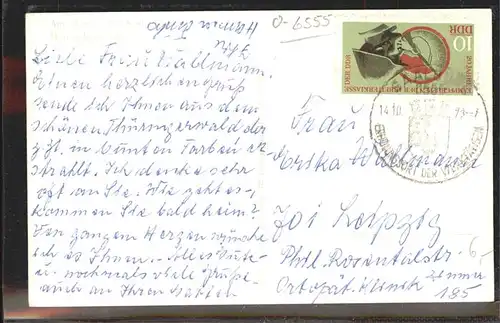 O-6555
Liebe Frau Wallmann.
Einen herzlichen Gruß
sende ich Ihnen aus dem
schönen Thüringerwald der
z.Zt. in bunten Farben er
strahlt. Ich denke sehr
oft an Sie. Wie geht es-
kommen Sie bald heim?
Von ganzem Herzen wünsche
ich es Ihnen. Alles Gute
u. nochmals viele Grüße
auch an Ihren Gatten
10
DDR
14.10.
Frau
Wallmann
701 Leipzig
Phil. Rosentalstr. 6
Ortopät. Klinik
Zimmer
185